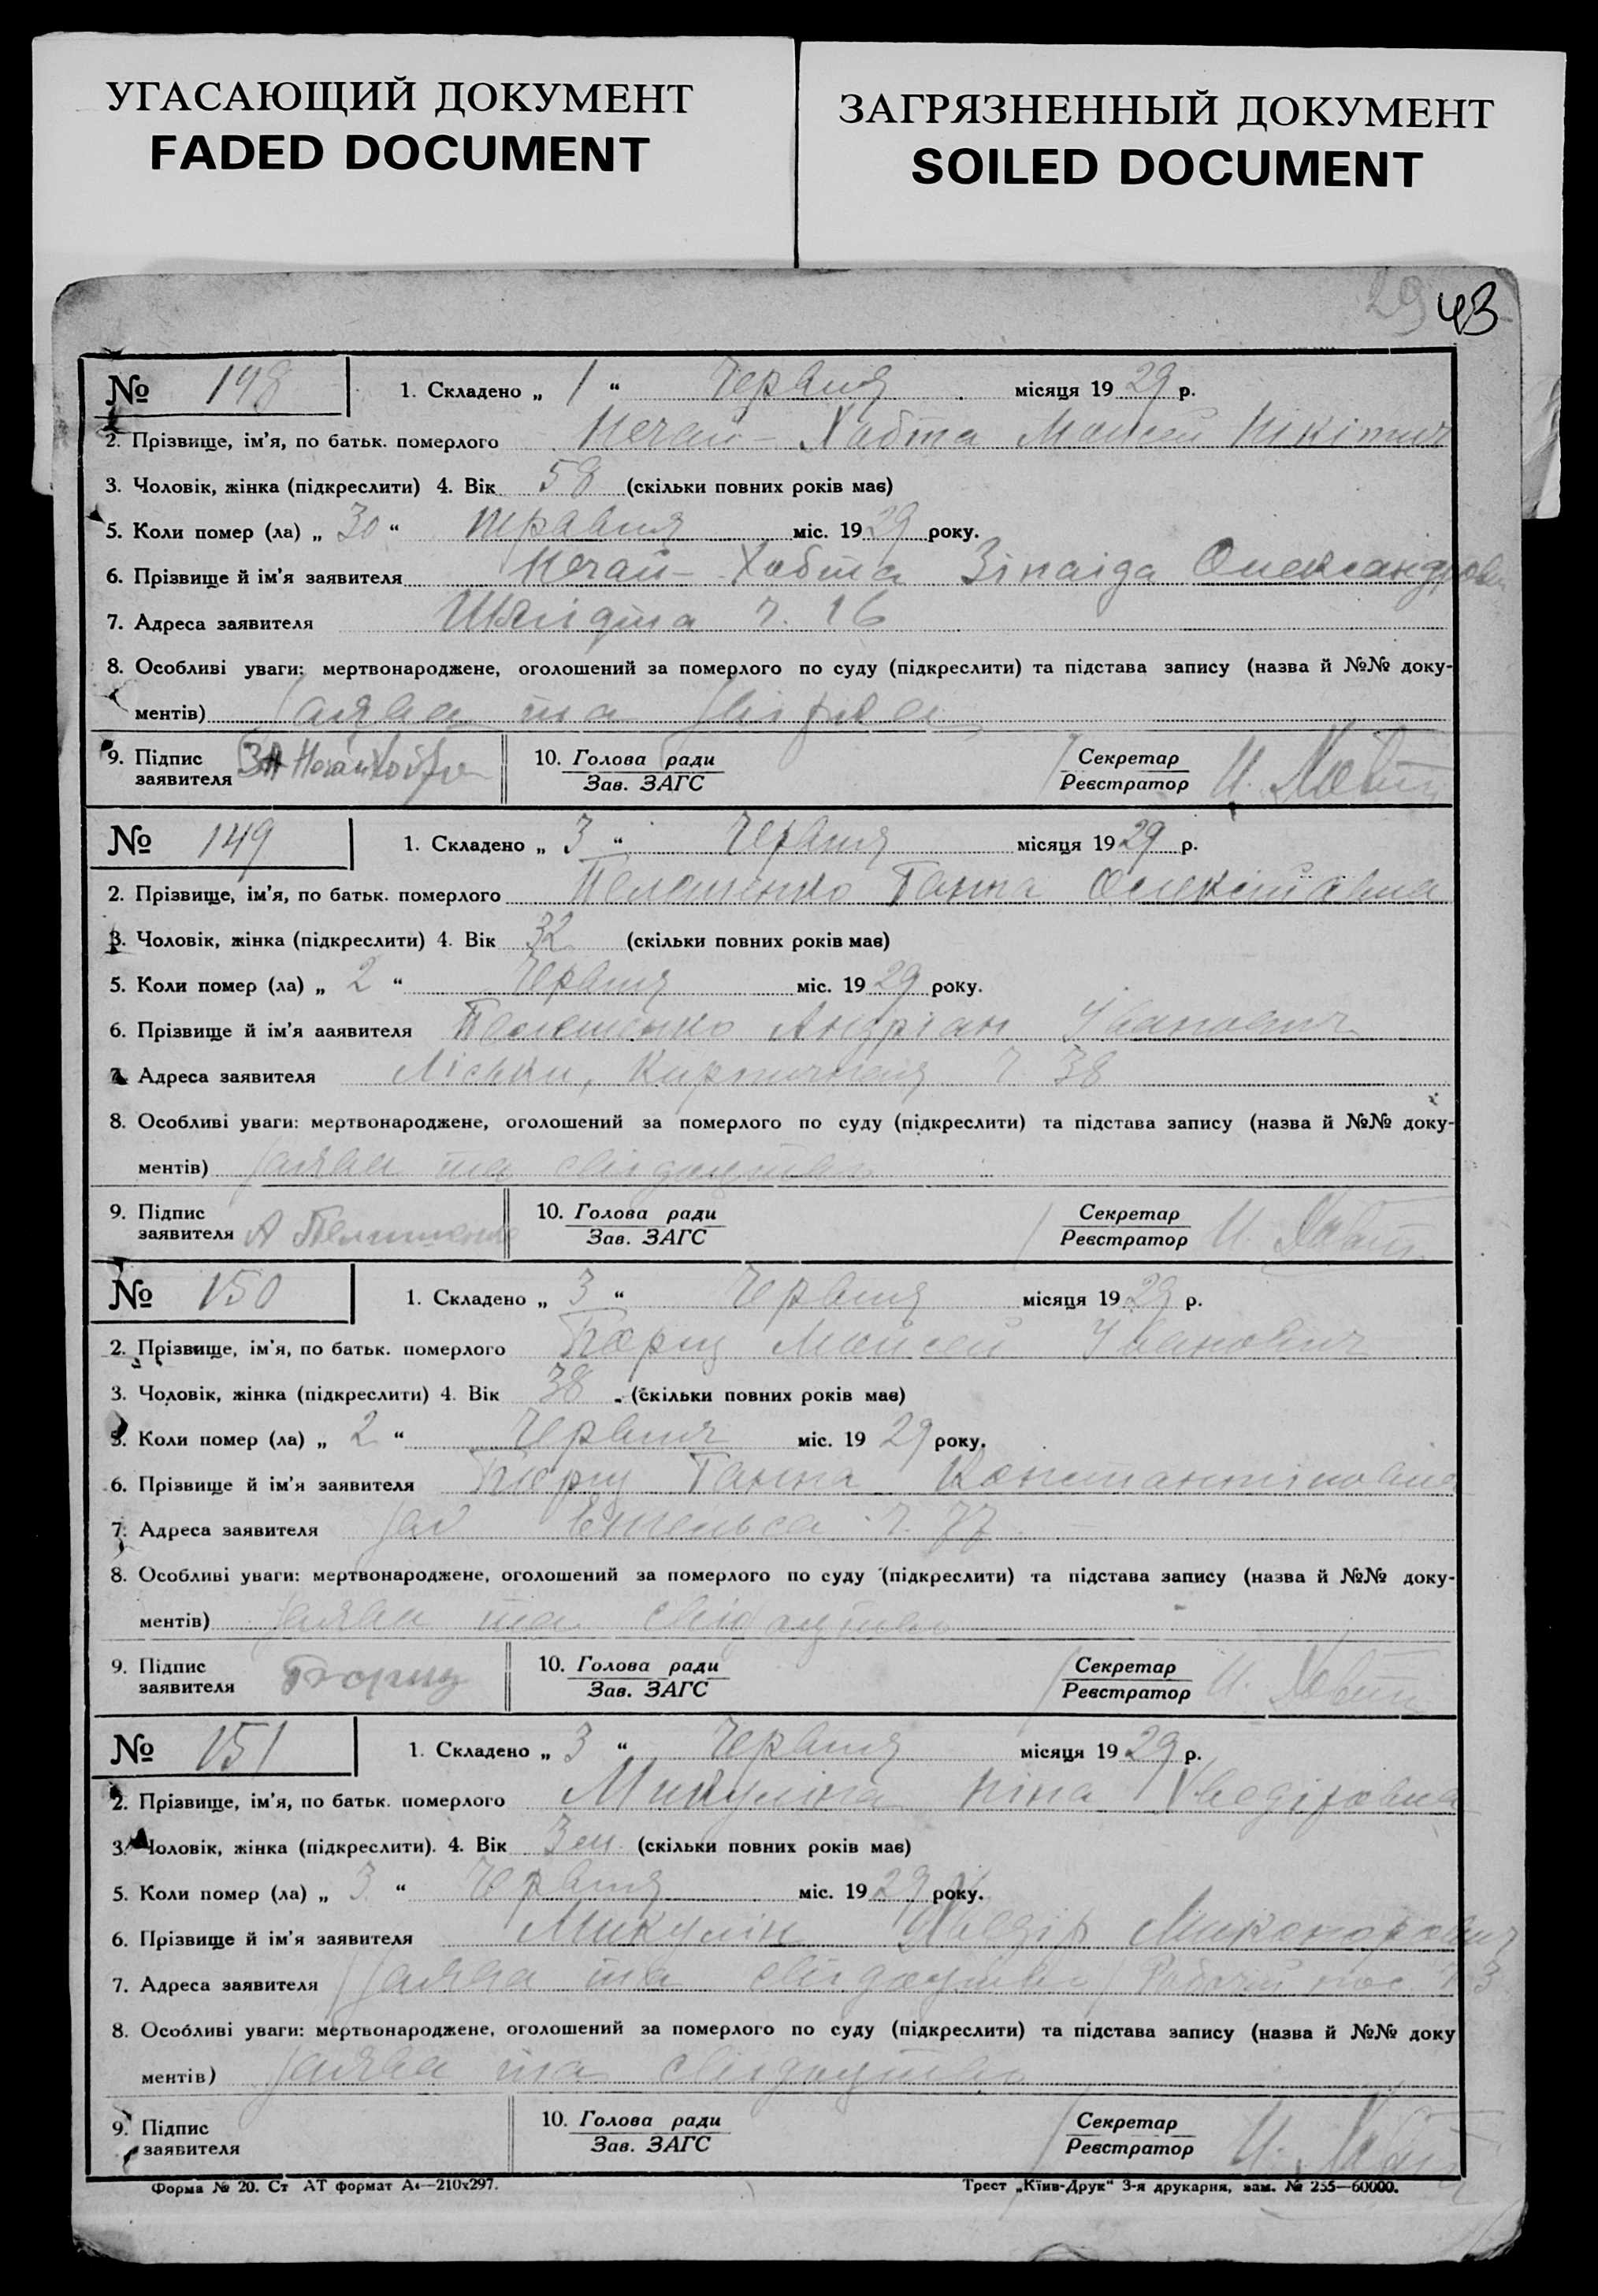 УГАСАЮЩИЙ ДОКУМЕНТ
FADED DOCUMENT
ЗАГРЯЗНЕННЫЙ ДОКУМЕНТ
SOILED DOCUMENT
29 43
№ 148 1. Складено „ 1 “ червня місяця 19 29 р.
2. Прізвище, ім'я, по батьк. померлого Нечай- Хобта Мойсей Нікітич
3. Чоловік, жінка (підкреслити) 4. Вік 58 (скільки повних років має)
5. Коли помер (ла) „ 30 “ травня міс. 19 29 року.
6. Прізвище й ім'я заявителя Нечай- Хобта Зінаіда
7. Адреса заявителя Шмідта ч. 16
8. Особливі уваги: мертвонароджене, оголошений за померлого по суду (підкреслити) та підстава запису (назва й №№ доку-
ментів) заява та
9. Підпис
заявителя
10. Голова ради
Зав. ЗАГС
Секретар
Реєстратор
№ 149 1. Складено „ 3 “ червня місяця 19 29 р.
2. Прізвище, ім'я, по батьк. померлого Ганна Олексіївна
3. Чоловік, жінка (підкреслити) 4. Вік 32 (скільки повних років має)
5. Коли помер (ла) „ 2 “ червня міс. 19 29 року.
6. Прізвище й ім'я заявителя Андріан Іванович
7. Адреса заявителя Ліськи, Кирпична ч 38
8. Особливі уваги: мертвонароджене, оголошений за померлого по суду (підкреслити) та підстава запису (назва й №№ доку-
ментів) заява та свідоцтво
9. Підпис
заявителя А
10. Голова ради
Зав. ЗАГС
Секретар
Реєстратор
№ 150 1. Складено „ 3 “ червня місяця 19 29 р.
2. Прізвище, ім'я, по батьк. померлого Мойсей Іванович
3. Чоловік, жінка (підкреслити) 4. Вік 38 (скільки повних років має)
5. Коли помер (ла) „ 2 “ червня міс. 19 29 року.
6. Прізвище й ім'я заявителя Ганна Константіновна
7. Адреса заявителя Енгельса ч. 77
8. Особливі уваги: мертвонароджене, оголошений за померлого по суду (підкреслити) та підстава запису (назва й №№ доку-
ментів) заява та свідоцтво
9. Підпис
заявителя
10. Голова ради
Зав. ЗАГС
Секретар
Реєстратор
№ 151 1. Складено „ 3 “ червня місяця 19 29 р.
2. Прізвище, ім'я, по батьк. померлого Микуліна Ніна
3. Чоловік, жінка (підкреслити). 4. Вік 3 (скільки повних років має)
5. Коли помер (ла) „ 3 “ червня міс. 19 29 року.
6. Прізвище й ім'я заявителя Микулін
7. Адреса заявителя заява та свідоцтво
8. Особливі уваги: мертвонароджене, оголошений за померлого по суду (підкреслити) та підстава запису (назва й №№ доку
ментів) заява та свідоцтво
9. Підпис
заявителя
10. Голова ради
Зав. ЗАГС
Секретар
Реєстратор
Форма № 20. Ст АТ формат А4—210х297.
Трест „Київ-Друк“ 3-я друкарня, зам. № 255—60000.